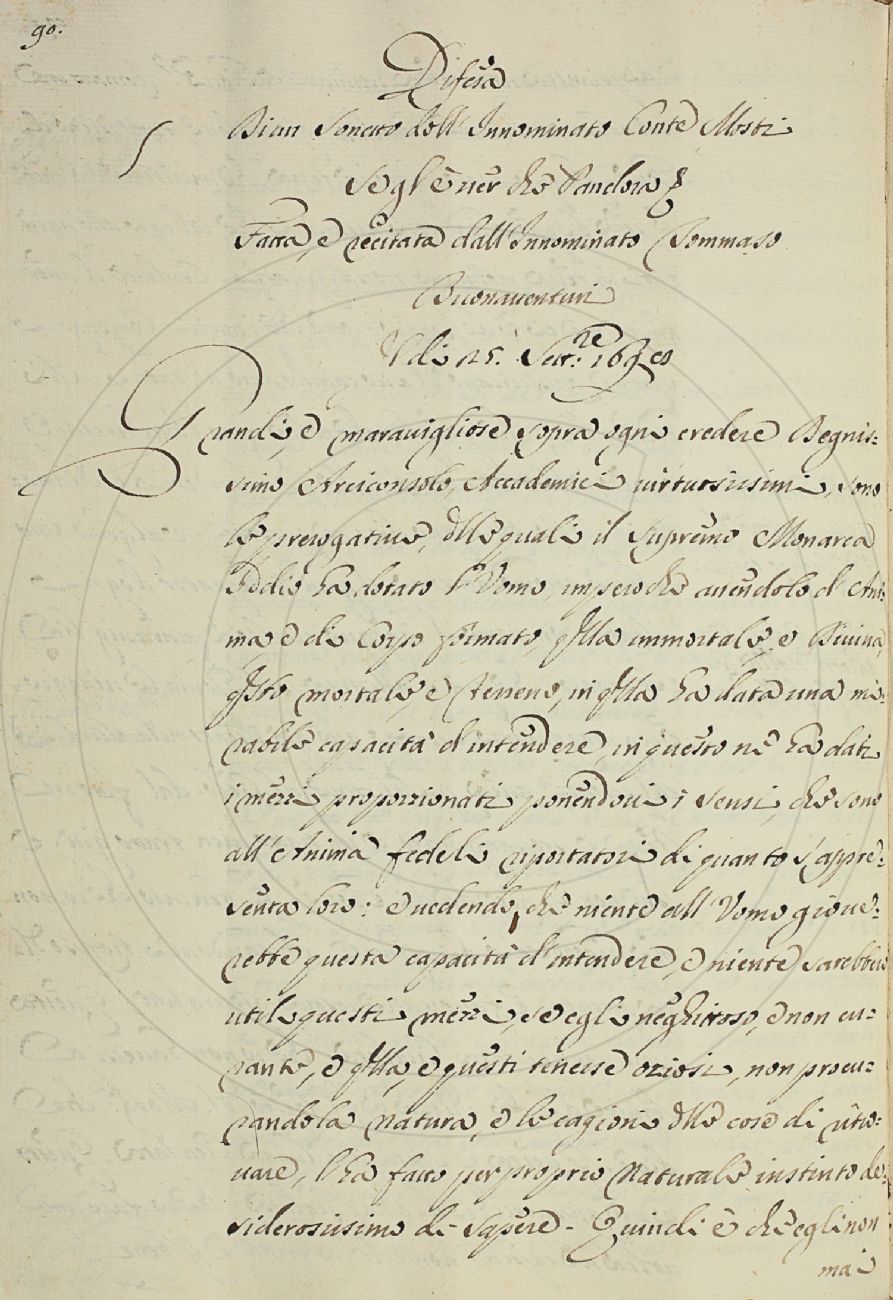 90.
Difesa
D'un Sonetto dell'Innominato Conte Mosti
Se gl'è ver che Pandora &
Fatta, e recitata dall'Innominato Tommaso
Buonaventuri
A di 25. Sett.re
Grandi, e maravigliose sopra ogni credere Degnis:
simo Arciconsolo, Accademici virtuosissimi, sono
le prerogative, dlle quali il Supremo Monarca
Iddio ha dotato l'Uomo, imperochè avendolo d'Ani:
ma e di Corpo formato, qlla immortale, e Divina,
qsto mortale, e terreno, in qlla ha data una mi:
rabile capacità d'intendere, in questo ne ha dati
i mezzi proporzionati ponendovi i sensi, che sono
all'Anima fedeli riportatori di quanto s'appre:
senta loro: e vedendo, che niente all'Uomo giove:
rebbe questa capacità d'intendere, e niente sarebbero
utili questi mezzi, se egli neghittoso, e non cu:
rante, e qlla, e questi tenesse oziosi, non procu:
rando la natura, e le cagioni dlle cose di ritro:
vare, l'ha fatto per proprio naturale instinto de:
siderosissimo di sapere. Quindi è che egli non
mai